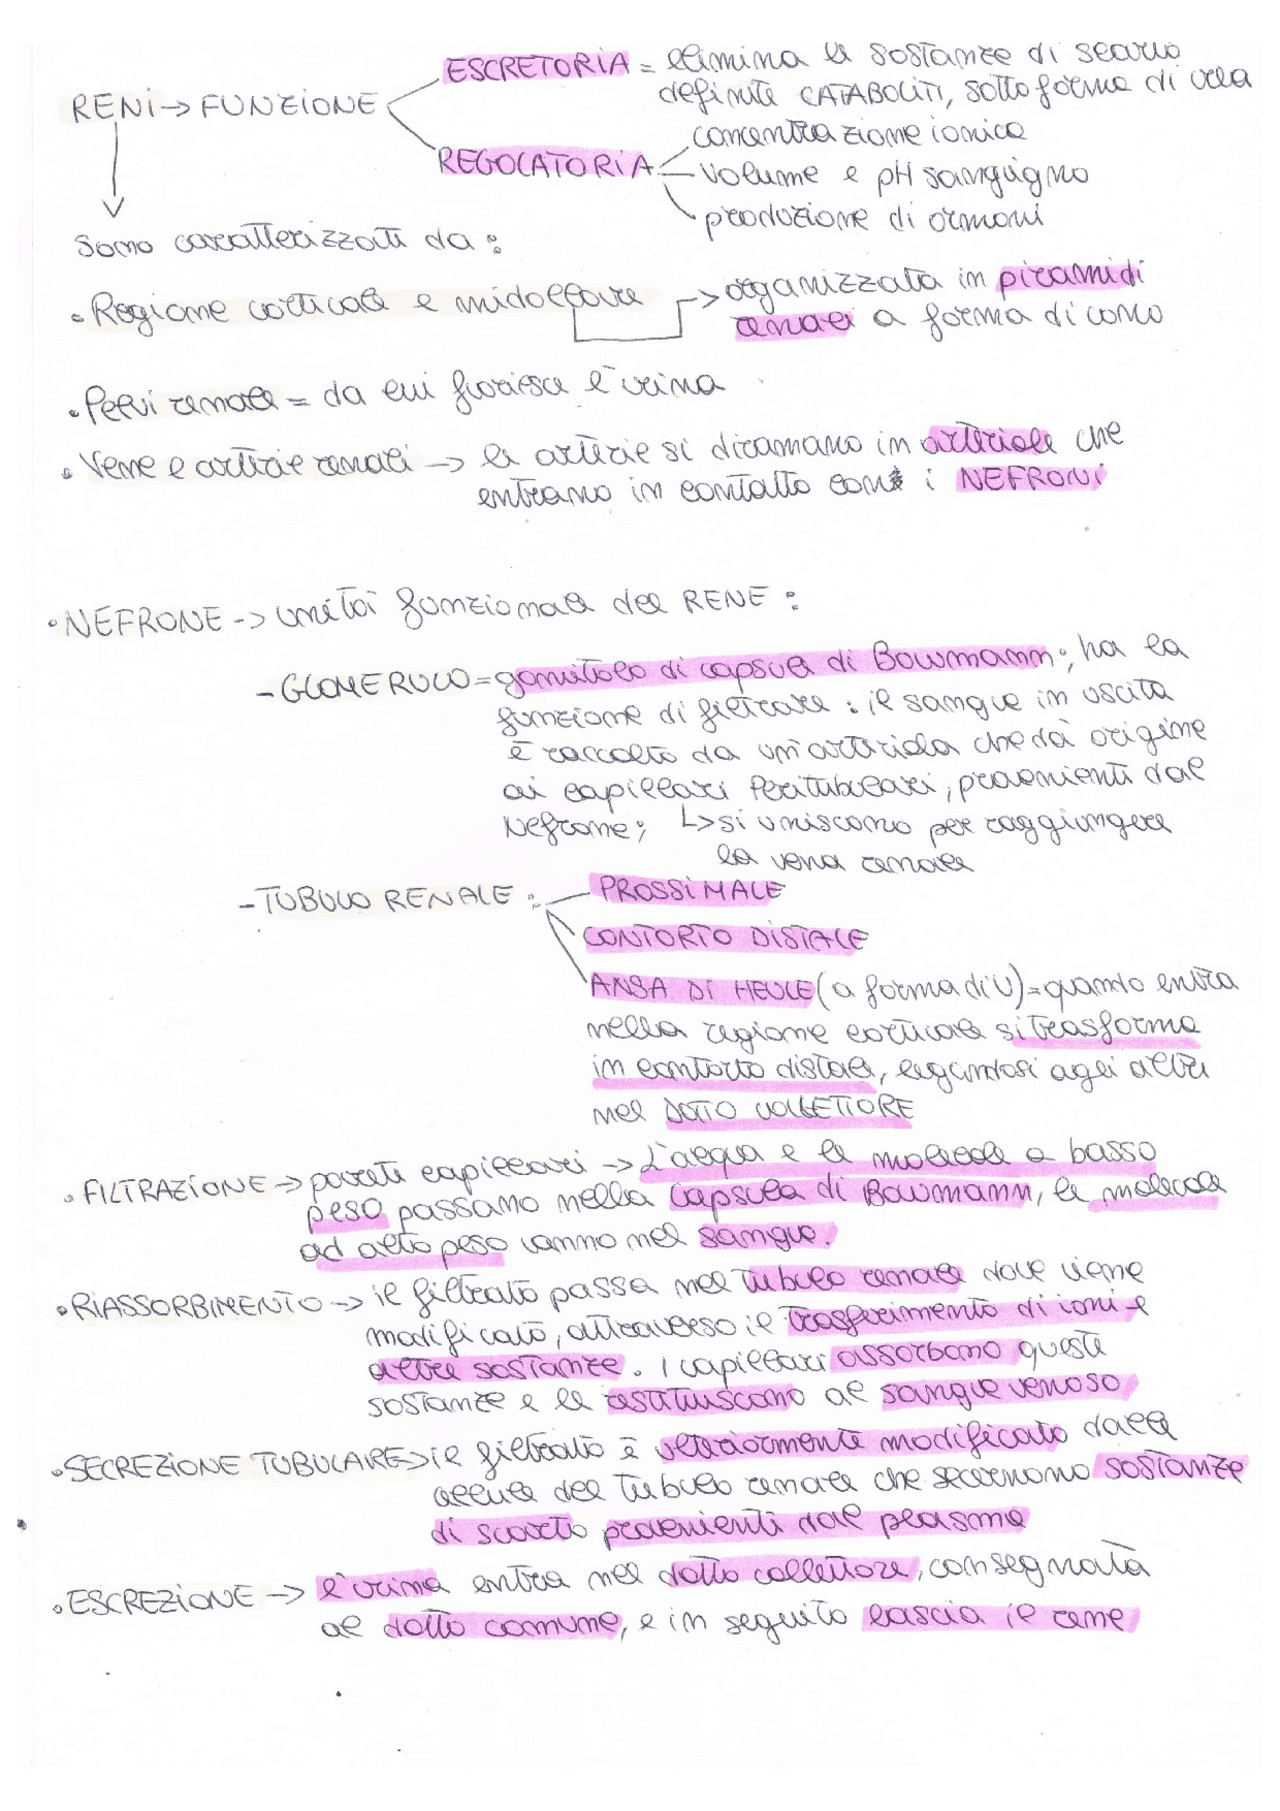 ESCRETORIA = elimina le sostanze di scarto
definite CATABOLITI, sotto forma di urea
RENI → FUNZIONE
concentrazione ionica
REGOLATORIA
volume e pH sanguigno
produzione di ormoni
Sono caratterizzati da:
• Regione corticale e midollare → organizzata in piramidi
renali a forma di cono
• Pelvi renale = da cui fluisce l'urina
• Vene e arterie renali → le arterie si diramano in arteriole che
entrano in contatto con i NEFRONI
• NEFRONE → unità funzionale del RENE:
- GLOMERULO = gomitolo di capsula di Bowmann; ha la
funzione di filtrare: il sangue in uscita
è raccolto da un'arteriola che dà origine
ai capillari Peritubulari, provenienti dal
Nefrone; ↳ si uniscono per raggiungere
la vena renale
- TUBULO RENALE:
PROSSIMALE
CONTORTO DISTALE
ANSA DI HENLE (a forma di U) = quando entra
nella regione corticale si trasforma
in contorto distale, legandosi agli altri
nel DOTTO COLLETTORE
• FILTRAZIONE → pareti capillari → L'acqua e le molecole a basso
peso passano nella Capsula di Bowmann, le molecole
ad alto peso vanno nel sangue.
• RIASSORBIMENTO → il filtrato passa nel Tubulo renale dove viene
modificato, attraverso il trasferimento di ioni e
altre sostanze. I capillari assorbono queste
sostanze e le restituiscono al sangue venoso
• SECREZIONE TUBULARE → il filtrato è ulteriormente modificato dalle
cellule del Tubulo renale che secernono sostanze
di scarto provenienti dal plasma
• ESCREZIONE → l'urina entra nel dotto collettore, consegnata
al dotto comune, e in seguito lascia il rene